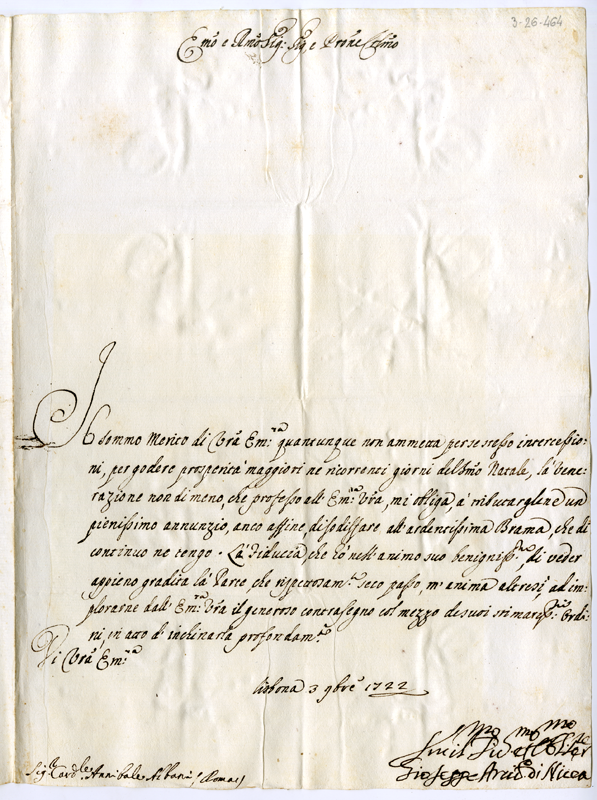 3-26-464
Emo e Rmo Sig: Sig e Prone Colmo
Il sommo Merito di Vrã Em:za quantunque non ammetta per se stesso intercessio:
ni, per godere prosperità maggiori ne ricorrenti giorni del Smo Natale, la Vene:
razione non di meno, che professo all' Em:za Vrã, mi obliga, à tributargliene un
pienissimo annunzio, anco affine, di sodisfare all' ardentissima Brama, che di
continuo ne tengo. La Fiducia, che hò nell' animo suo benigniss:mo, di veder
appieno gradita la Parte, che rispettosam:te seco passo, m' anima altresì, ad im:
plorarne dall' Em:za Vrã il generoso contrasegno col mezzo de suoi stimatiss:mi Ordi:
ni, in atto d' inchinarla profondam:te
Di Vrã Em:za
Lisbona 3 9bre 1722
Giuseppe Arciv:o di Nicea
Sig:r Card:le Annibale Albani (Roma)